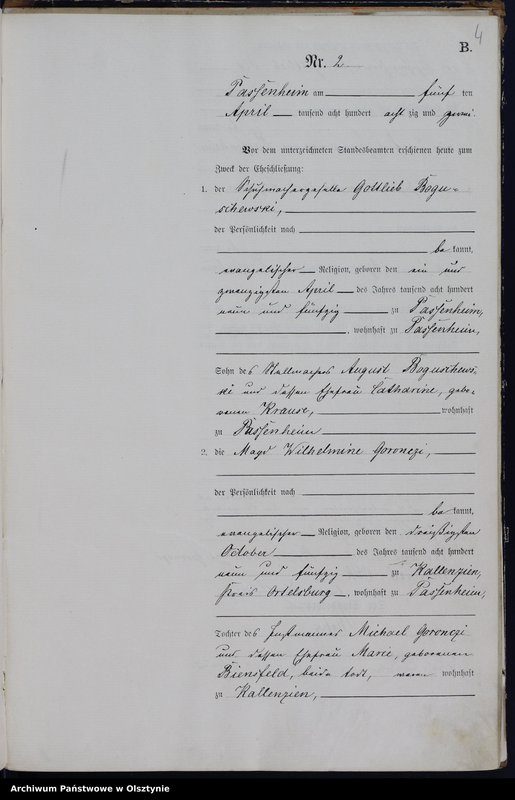 4
B.
Nr. 2
Passenheim am fünf ten
April tausend acht hundert acht zig und zwei.
Vor dem unterzeichneten Standesbeamten erschienen heute zum
Zweck der Eheschließung:
1. der Schuhmachergeselle Gottlieb Bogu-
schewski,
der Persönlichkeit nach
be kannt,
evangelischer Religion, geboren den ein und
zwanzigsten April des Jahres tausend acht hundert
neun und fünfzig zu Passenheim,
, wohnhaft zu Passenheim,
Sohn des Stellmachers August Boguschews-
ki und dessen Ehefrau Catharine, gebo-
renen Krause, wohnhaft
zu Passenheim
2. die Magd Wilhelmine Goronczi,
der Persönlichkeit nach
be kannt,
evangelischer Religion, geboren den dreißigsten
October des Jahres tausend acht hundert
neun und fünfzig zu Kallenzien,
Kreis Ortelsburg, wohnhaft zu Passenheim,
Tochter des Instmannes Michael Goronczi
und dessen Ehefrau Marie, geborenen
Biensfeld, beide todt, waren wohnhaft
zu Kallenzien,
Archiwum Państwowe w Olsztynie